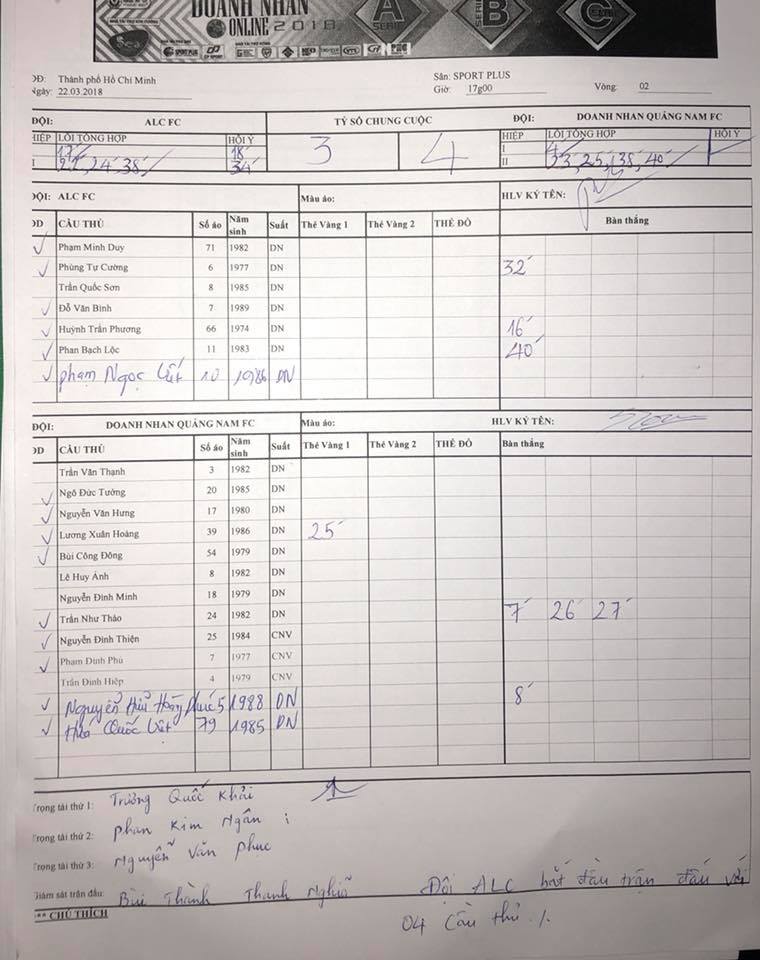 DOANH NHÂN
ONLINE 2018
A SERIE
B SERIE
C SERIE
SPORT PLUS
DĐ: Thành phố Hồ Chí Minh Sân: SPORT PLUS
Ngày: 22.03.2018 Giờ: 17g00 Vòng: 02
ĐỘI: ALC FC TỶ SỐ CHUNG CUỘC ĐỘI: DOANH NHAN QUẢNG NAM FC
HIỆP LỖI TỔNG HỢP HỘI Ý 3 4 HIỆP LỖI TỔNG HỢP HỘI Ý
17' 18' I 4'
I 22', 24', 38' 34' II 23', 25', 38', 40'
ĐỘI: ALC FC Màu áo: HLV KÝ TÊN:
DD CẦU THỦ Số áo Năm sinh Suất Thẻ Vàng 1 Thẻ Vàng 2 THẺ ĐỎ Bàn thắng
Phạm Minh Duy 71 1982 DN
Phùng Tự Cường 6 1977 DN 32'
Trần Quốc Sơn 8 1985 DN
Đỗ Văn Bình 7 1989 DN
Huỳnh Trần Phương 66 1974 DN 16'
Phan Bạch Lộc 11 1983 DN 40'
phạm Ngọc Việt 10 1986 DN
ĐỘI: DOANH NHAN QUẢNG NAM FC Màu áo: HLV KÝ TÊN:
DD CẦU THỦ Số áo Năm sinh Suất Thẻ Vàng 1 Thẻ Vàng 2 THẺ ĐỎ Bàn thắng
Trần Văn Thạnh 3 1982 DN
Ngô Đức Tưởng 20 1985 DN
Nguyễn Văn Hưng 17 1980 DN
Lương Xuân Hoàng 39 1986 DN 25'
Bùi Công Đông 54 1979 DN
Lê Huy Ánh 8 1982 DN
Nguyễn Đình Minh 18 1979 DN
Trần Như Thảo 24 1982 DN 7' 26' 27'
Nguyễn Đình Thiện 25 1984 CNV
Phạm Đình Phú 7 1977 CNV
Trần Đình Hiệp 4 1979 CNV
Nguyễn Hữu Hồng Phúc 5 1988 DN 8'
Hứa Quốc Việt 79 1985 DN
Trọng tài thứ 1: Trường Quốc Khải
Trọng tài thứ 2: phan Kim Ngân
Trọng tài thứ 3: Nguyễn Văn phục
Giám sát trận đấu: Bùi Thành Thanh Nghiễ Đội ALC bắt đầu trận đấu với
*** CHÚ THÍCH 04 Cầu thủ ./.